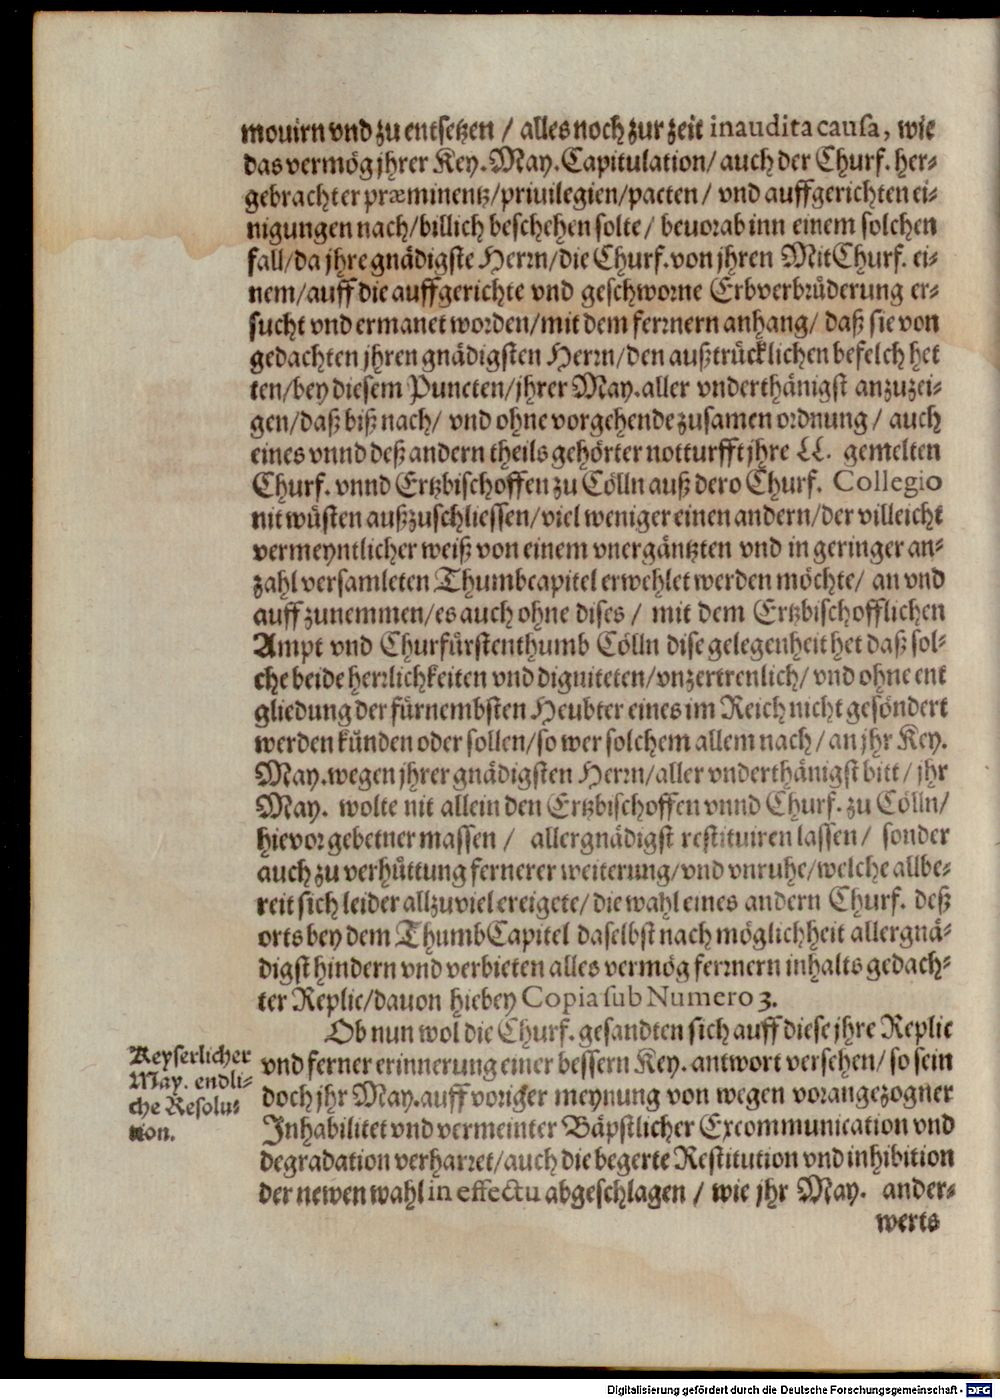 mouirn vnd zu entsetzen / alles noch zur zeit inaudita causa, wie
das vermög jhrer Key. May. Capitulation/ auch der Churf. her-
gebrachter præminentz/priuilegien/pacten/ vnd auffgerichten ei-
nigungen nach/billich beschehen solte/ beuorab inn einem solchen
fall/da jhre gnädigste Herrn/die Churf. von jhren MitChurf. ei-
nem/auff die auffgerichte vnd geschworne Erbverbrüderung er-
sucht vnd ermanet worden/mit dem fernern anhang/ daß sie von
gedachten jhren gnädigsten Herrn/den außtrücklichen befelch het
ten/bey diesem Puncten/jhrer May. aller vnderthänigst anzuzei-
gen/daß biß nach/ vnd ohne vorgehende zusamen ordnung / auch
eines vnnd deß andern theils gehörter notturfft jhre LL. gemelten
Churf. vnnd Ertzbischoffen zu Cölln auß dero Churf. Collegio
nit wüsten außzuschliessen/viel weniger einen andern/der villeicht
vermeyntlicher weiß von einem vnergäntzten vnd in geringer an-
zahl versamleten Thumbcapitel erwehlet werden möchte/ an vnd
auff zunemmen/es auch ohne dises / mit dem Ertzbischofflichen
Ampt vnd Churfürstenthumb Cölln dise gelegenheit het daß sol-
che beide herrlichkeiten vnd digniteten/vnzertrenlich/ vnd ohne ent
gliedung der fürnembsten Heubter eines im Reich nicht gesöndert
werden künden oder sollen/so wer solchem allem nach/ an jhr Key.
May. wegen jhrer gnädigsten Herrn/aller vnderthänigst bitt/ jhr
May. wolte nit allein den Ertzbischoffen vnnd Churf. zu Cölln/
hievor gebetner massen / allergnädigst restituiren lassen/ sonder
auch zu verhüttung fernerer weiterung/vnd vnruhe/welche allbe-
reit sich leider allzuviel ereigete/ die wahl eines andern Churf. deß
orts bey dem ThumbCapitel daselbst nach möglichheit allergnä-
digst hindern vnd verbieten alles vermög fernern inhalts gedach-
ter Replic/dauon hiebey Copia sub Numero 3.
Ob nun wol die Churf. gesandten sich auff diese jhre Replic
vnd ferner erinnerung einer bessern Key. antwort versehen/ so sein
doch jhr May. auff voriger meynung von wegen vorangezogner
Inhabilitet vnd vermeinter Bäpstlicher Excommunication vnd
degradation verharret/auch die begerte Restitution vnd inhibition
der newen wahl in effectu abgeschlagen / wie jhr May. ander-
werts
Keyserlicher
May. endli-
che Resolu-
tion.
Digitalisierung gefördert durch die Deutsche Forschungsgemeinschaft - DFG